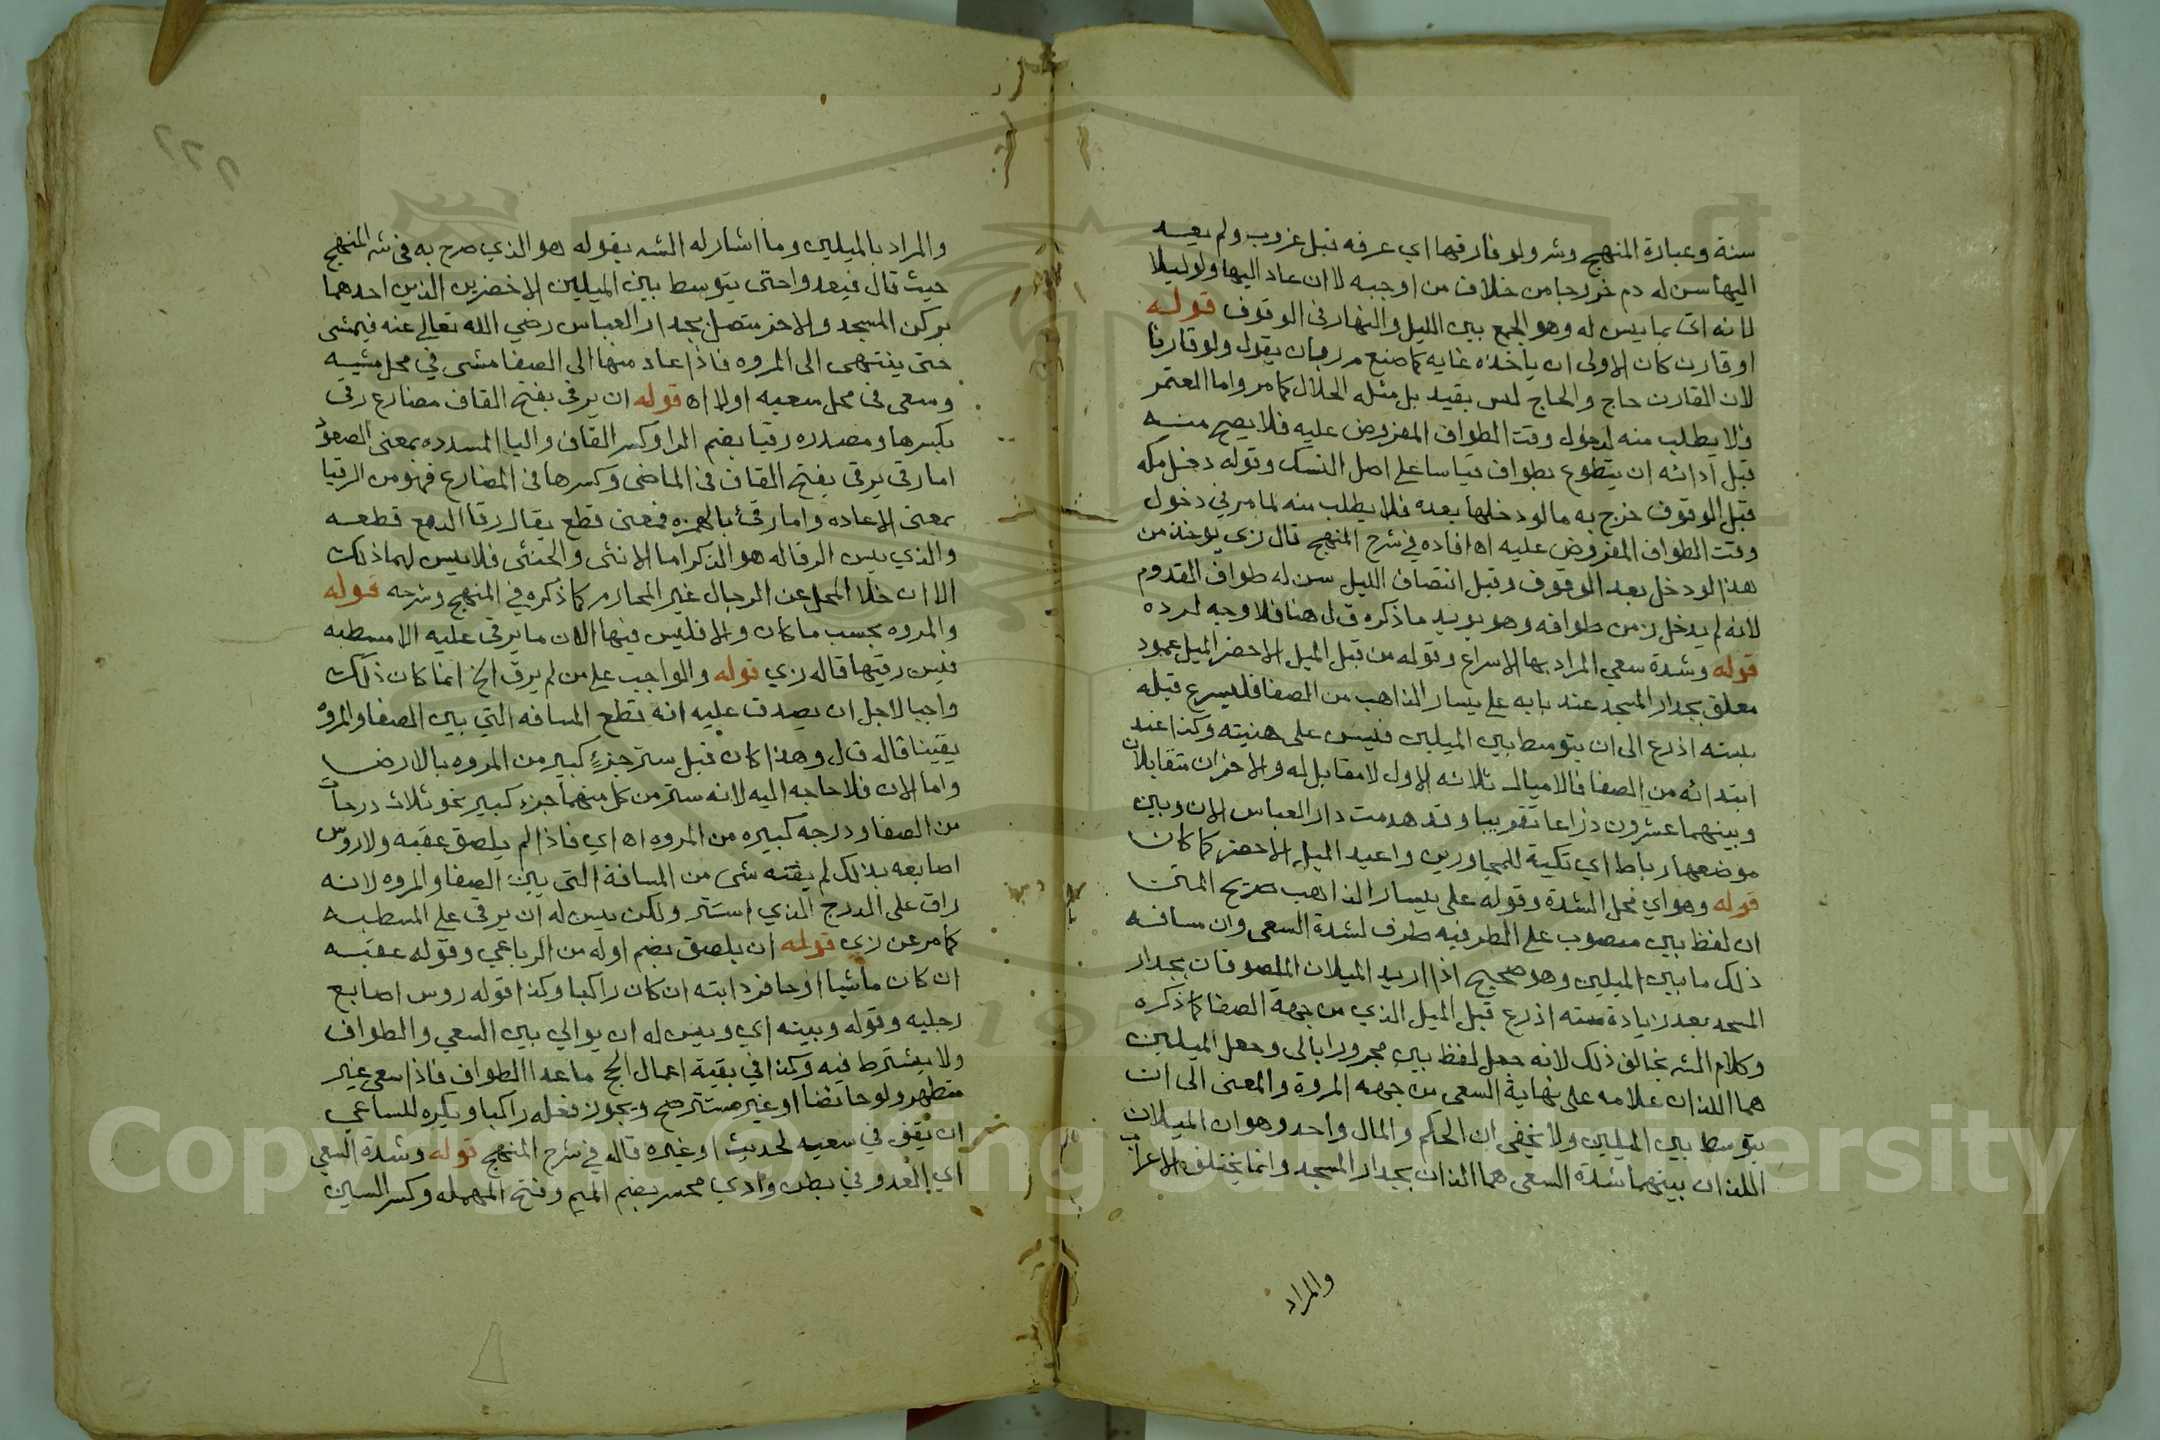 سنة وعبارة المنهج وشر ولو فارقها اي عرفه قبل غروب ولم يعد
اليها سن له دم خروجا من خلاف من اوجبه لا ان عاد اليها ولو ليلا
لانه اتى بما يسن له وهو الجمع بين الليل والنهار في الوقوف قوله
او قارن كان الاولى ان ياخذه غايه كما صنع م ر بان يقول ولو قارنا
لان القارن حاج والحاج ليس بقيد بل مثله الحلال كما مر واما المعتمر
فلا يطلب منه لدخول وقت الطواف المفروض عليه فلا يصح منه
قبل ادائه ان يتطوع بطواف قياسا على اصل النسك وقوله دخل مكه
قبل الوقوف خرج به ما لو دخلها بعده فلا يطلب منه لما مر في دخول
وقت الطواف المفروض عليه اه افاده في شرح المنهج قال زي يوخذ من
هذا لو دخل بعد الوقوف وقبل انتصاف الليل سن له طواف القدوم
لانه لم يدخل زمن طوافه وهو يويد ما ذكره ق ل هنا فلا وجه لرده
قوله وشدة سعي المراد بها الاسراع وقوله من قبل الميل الاخضر الميل عمود
معلق بجدار المسجد عند بابه على يسار الذاهب من الصفا فليسرع قبله
بسته اذرع الى ان يتوسط بين الميلين فليس على هنيته وكذا عند
ابتدائه من الصفا فالاميال ثلاثه الاول لا مقابل له والاخران متقابلان
وبينهما عشرون ذراعا تقريبا وقد هدمت دار العباس الان وبين
موضعها رباط اي تكية للمجاورين واعيد الميل الاخضر كما كان
قوله وهو اي محل الشدة وقوله على يسار الذاهب صريح المتن
ان لفظ بين منصوب على الظرفيه ظرف لشدة السعي وان مسافه
ذلك ما بين الميلين وهو صحيح اذا اريد الميلان الملصوقان بجدار
المسجد بعد زيادة سته اذرع قبل الميل الذي من جهة الصفا كما ذكره
وكلام الشه يخالف ذلك لانه جعل لفظ بين مجرورا بالى وجعل الميلين
هما اللذان علامه على نهاية السعي من جهه المروة والمعنى الى ان
يتوسط بين الميلين ولا يخفى ان الحكم والمال واحد وهو ان الميلان
اللذان بينهما شدة السعي هما اللذان بجدار المسجد وانما يختلف الاعراب
والمراد
والمراد بالميلين وما اشار له الشه بقوله هو الذي صرح به في شه المنهج
حيث قال فيعدوا حتى يتوسط بين الميلين الاخضرين الذين احدهما
بركن المسجد والاخر متصل بجدار العباس رضي الله تعالى عنه فيمشى
حتى ينتهى الى المروه فاذا عاد منها الى الصفا مشى في محل مشيه
وسعى في محل سعيه اولا اه قوله ان يرقى بفتح القاف مضارع رقي
بكسرها ومصدره رقيا بضم الرا وكسر القاف واليا المسدده بمعنى الصعود
اما رقى يرقي بفتح القاف في الماضى وكسرها في المضارع فهو من الرقيا
بمعنى الاعاده واما رقئ بالهمزه فمعنى قطع يقال رقا الدمع قطعه
والذي يسن الرقا له هو الذكر اما الانثى والخنثى فلا يسن لهما ذلك
الا ان خلا المحل عن الرجال غير المحارم كما ذكره في المنهج وشرحه قوله
والمروه بحسب ما كان والا فليس فيها الان ما يرقى عليه الا مسطبه
فيسن رقيها قاله زي قوله والواجب على من لم يرق الخ انما كان ذلك
واجبا لاجل ان يصدق عليه انه قطع المسافه التي بين الصفا والمروه
يقينا قاله ق ل وهذا كان قبل ستر جزءٍ كبير من المروه بالارض
واما الان فلا حاجه اليه لانه ستر من كل منهما جزء كبير نحو ثلاث درجات
من الصفا ودرجه كبيره من المروه اه اي فاذا لم يلصق عقبه ولا روس
اصابعه بذلك لم يفته شى من المسافة التى بين الصفا والمروه لانه
راق على الدرج الذي استتر ولكن يسن له ان يرقى على المسطبه
كما مر عن زي قوله ان يلصق بضم اوله من الرباعي وقوله عقبه
ان كان ماشيا او حافر دابته ان كان راكبا وكذا قوله روس اصابع
رجليه وقوله وبينه اي ويسن له ان يوالي بين السعي والطواف
ولا يشترط فيه وكذا في بقية اعمال الحج ما عدا الطواف فاذا سعى غير
متطهر ولو حائضا او غير مستتر صح ويجوز فعله راكبا ويكره للساعي
ان يقف في سعيه لحديث او غيره قاله في شرح المنهج قوله وشدة السعي
اي العدو في بطن وادي محسر بضم الميم وفتح المهمله وكسر السين
Copyright © King Saud University